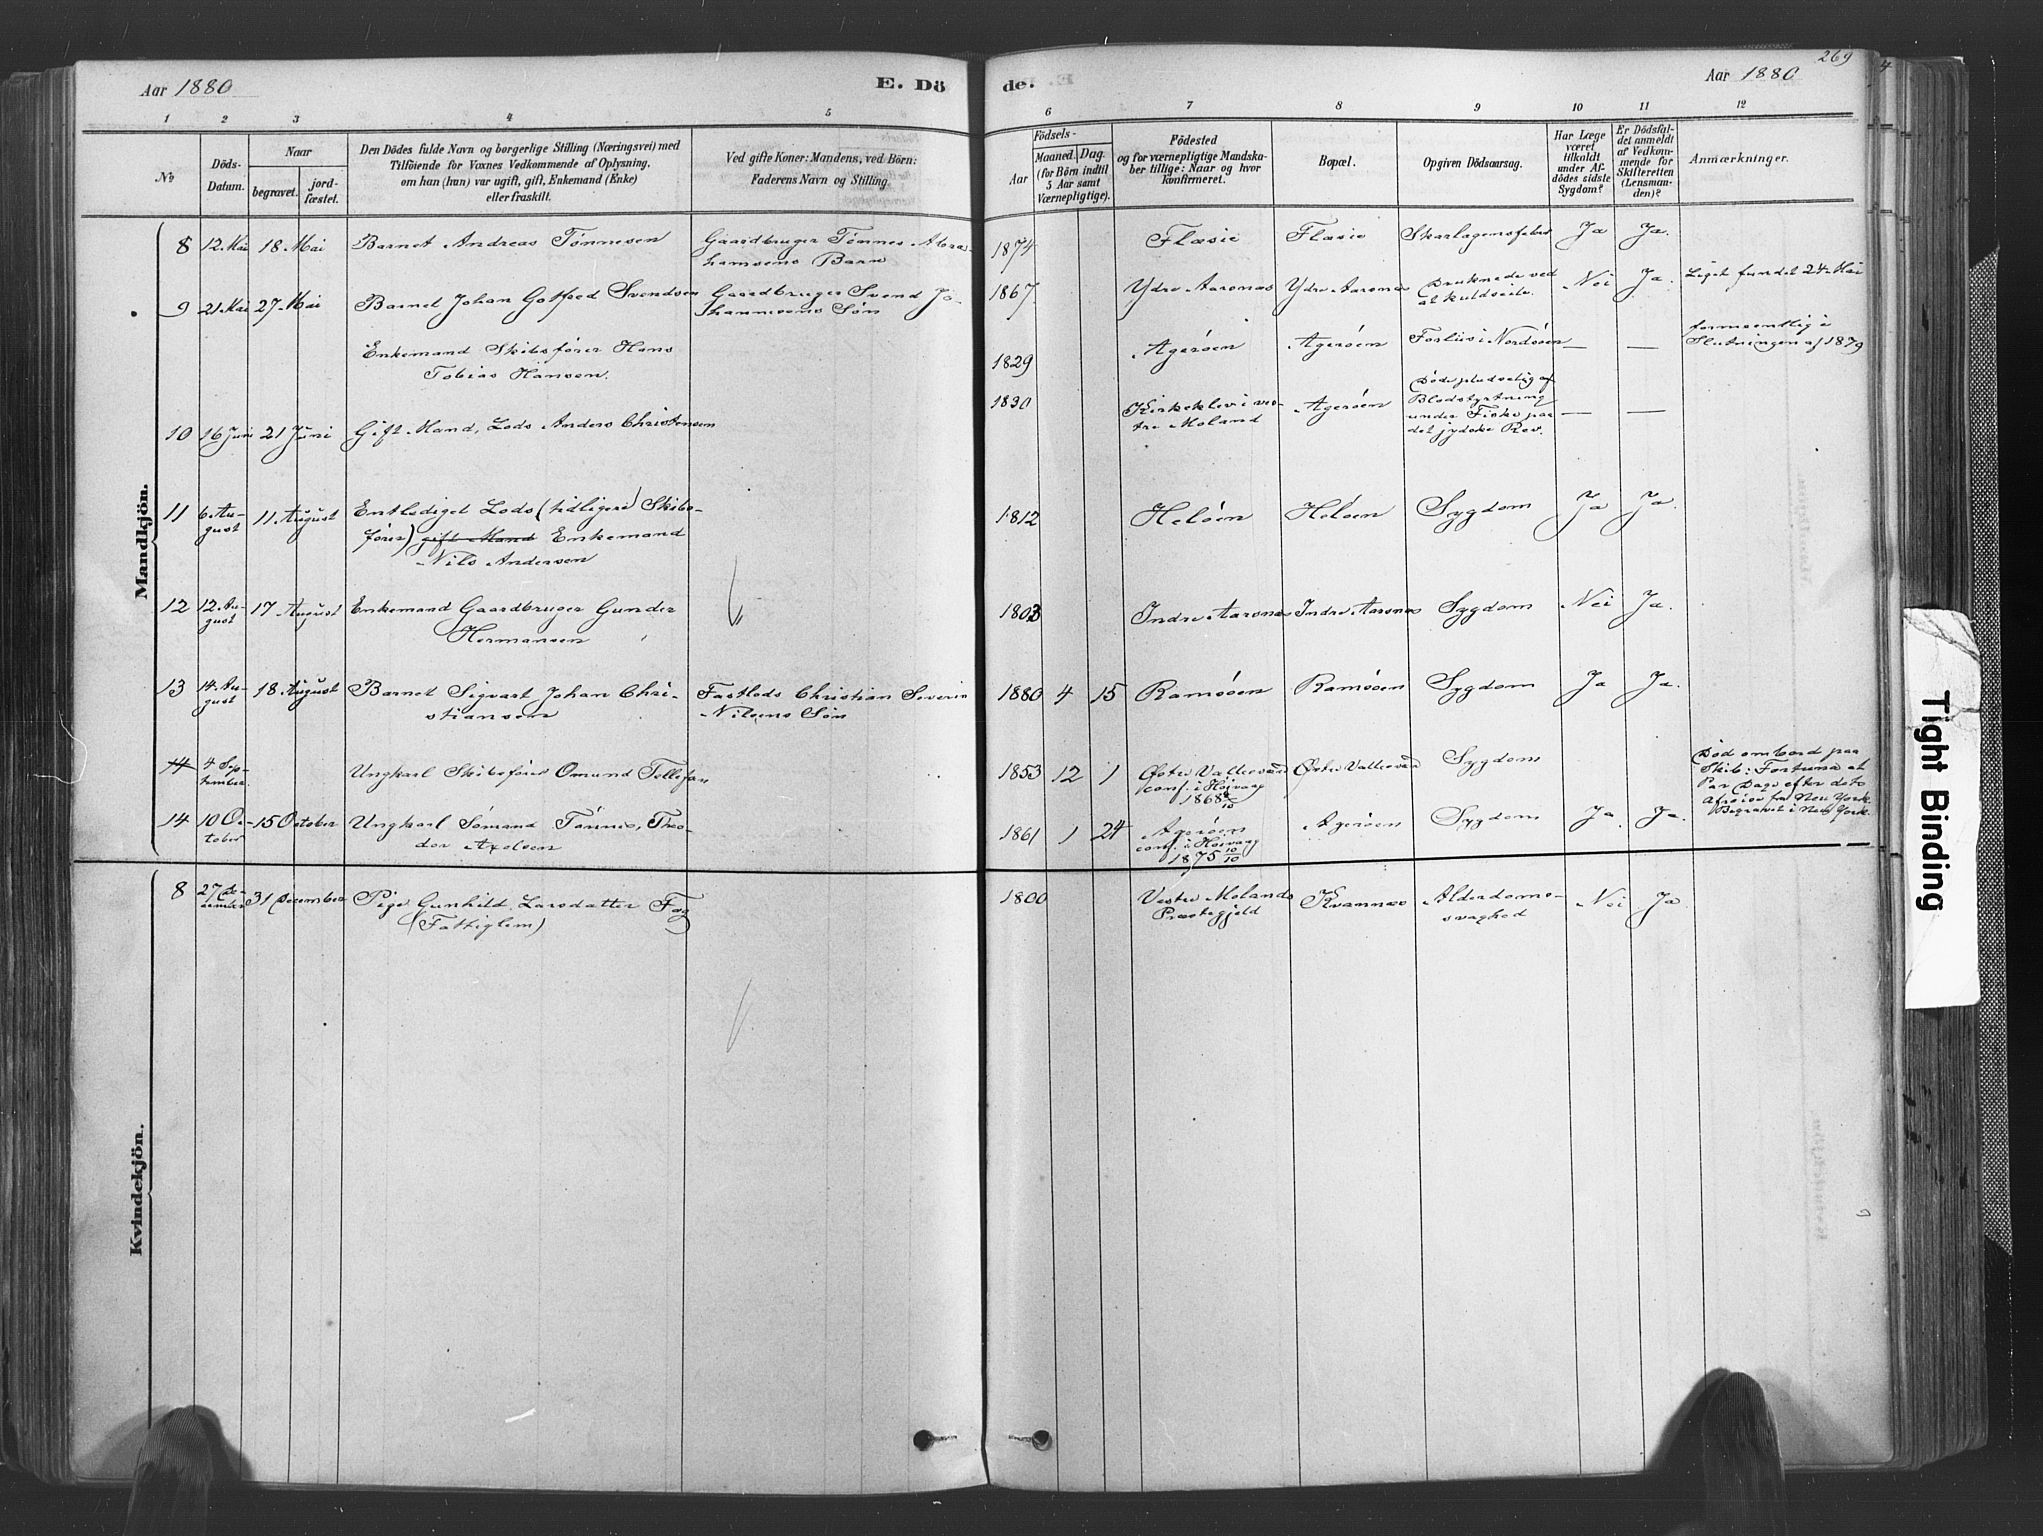 Aar 1880
E. Dö
de.
Aar 1880
269
4
1 2 3 4 5
6 7 8 9 10 11 12
No
Döds-
Datum.
Naar
begravet.
jord-
fæstet.
Den Dödes fulde Navn og borgerlige Stilling (Næringsvei) med
Tilföiende for Voxnes Vedkommende af Oplysning,
om han (hun) var ugift, gift, Enkemand (Enke)
eller fraskilt.
Ved gifte Koner: Mandens, ved Börn:
Faderens Navn og Stilling.
Födsels-
Aar
Maaned. Dag.
(for Börn indtil
5 Aar samt
Værnepligtige).
Födested
og for værnepligtige Mandska-
ber tillige: Naar og hvor
konfirmeret.
Bopæl.
Opgiven Dödsaarsag.
Har Læge
været
tilkaldt
under Af-
dödes sidste
Sygdom?
Er Dödsfal-
det anmeldt
af Vedkom-
mende for
Skifteretten
(Lensman-
den)?
Anmærkninger.
Mandkjön.
8 12. Mai 18 Mai Barnet Andreas Tønnesen Gaardbruger Tønnes Abra-
hamsens Barn
1874 Flasie Flasie Skarlagensfeber Ja Ja.
9 21 Mai 27 Mai Barnet Johan Gotfred Svendsen Gaardbruger Svend Jo-
hannesens Søn
1867 Ydre Aarsnæs Ydre Aarsnæs Druknede ved
at kuldseile. Nei Ja. Liget fundet 24. Mai
Enkemand Skibsfører Hans
Tobias Hansen.
1829 Agerøen Agerøen Forliis i Nordsøen — — formeentlig i
Slutningen af 1879
10 16 Juni 21 Juni Gift Mand, Lods Anders Christensen
1830 Kirkeklev i ves-
tre Moland Agerøen Døde pludselig af
Blodstyrtning
under Fiske paa
det jydske Rev. — —
11 6. Au-
gust 11 August Entlediget Lods (tidligere Skibs-
fører) gift Mand Enkemand
Nils Andersen
1812 Heløen Heløen Sygdom Ja Ja.
12 12. Au-
gust 17 August Enkemand Gaardbruger Gunder
Hermansen
1803 Indre Aarsnæs Indre Aarsnæs Sygdom Nei Ja.
13 14. Au-
gust 18 August Barnet Sigvart Johan Chri-
stiansen Fastlods Christian Severin
Nilsens Søn
1880 4 15 Ramsøen Ramsøen Sygdom Ja Ja.
14 4 Sep-
tember Ungkarl Skibsfører Omund Tellefsen
1853 12 1 Østre Vallesværd
conf. i Høivaag
1868 Østre Vallesværd Sygdom Død ombord paa
Skib: Fortuna et
Par Dage efter dets
Afreise fra New York.
Begravet i New York.
14 10 Oc-
tober 15 October Ungkarl Sømand Tønnes, Theo-
dor Axelsen
1861 1 24 Agerøen
conf. i Høivaag
1875 10/10 Agerøen Sygdom Ja. Ja.
Kvindekjön.
8 27 De-
cember 31 December Pige Gunhild Larsdatter
(Fattiglem)
1800 Vestre Molands
Præstegjeld Kvannæs Alderdoms-
svaghed Nei Ja.
Tight Binding